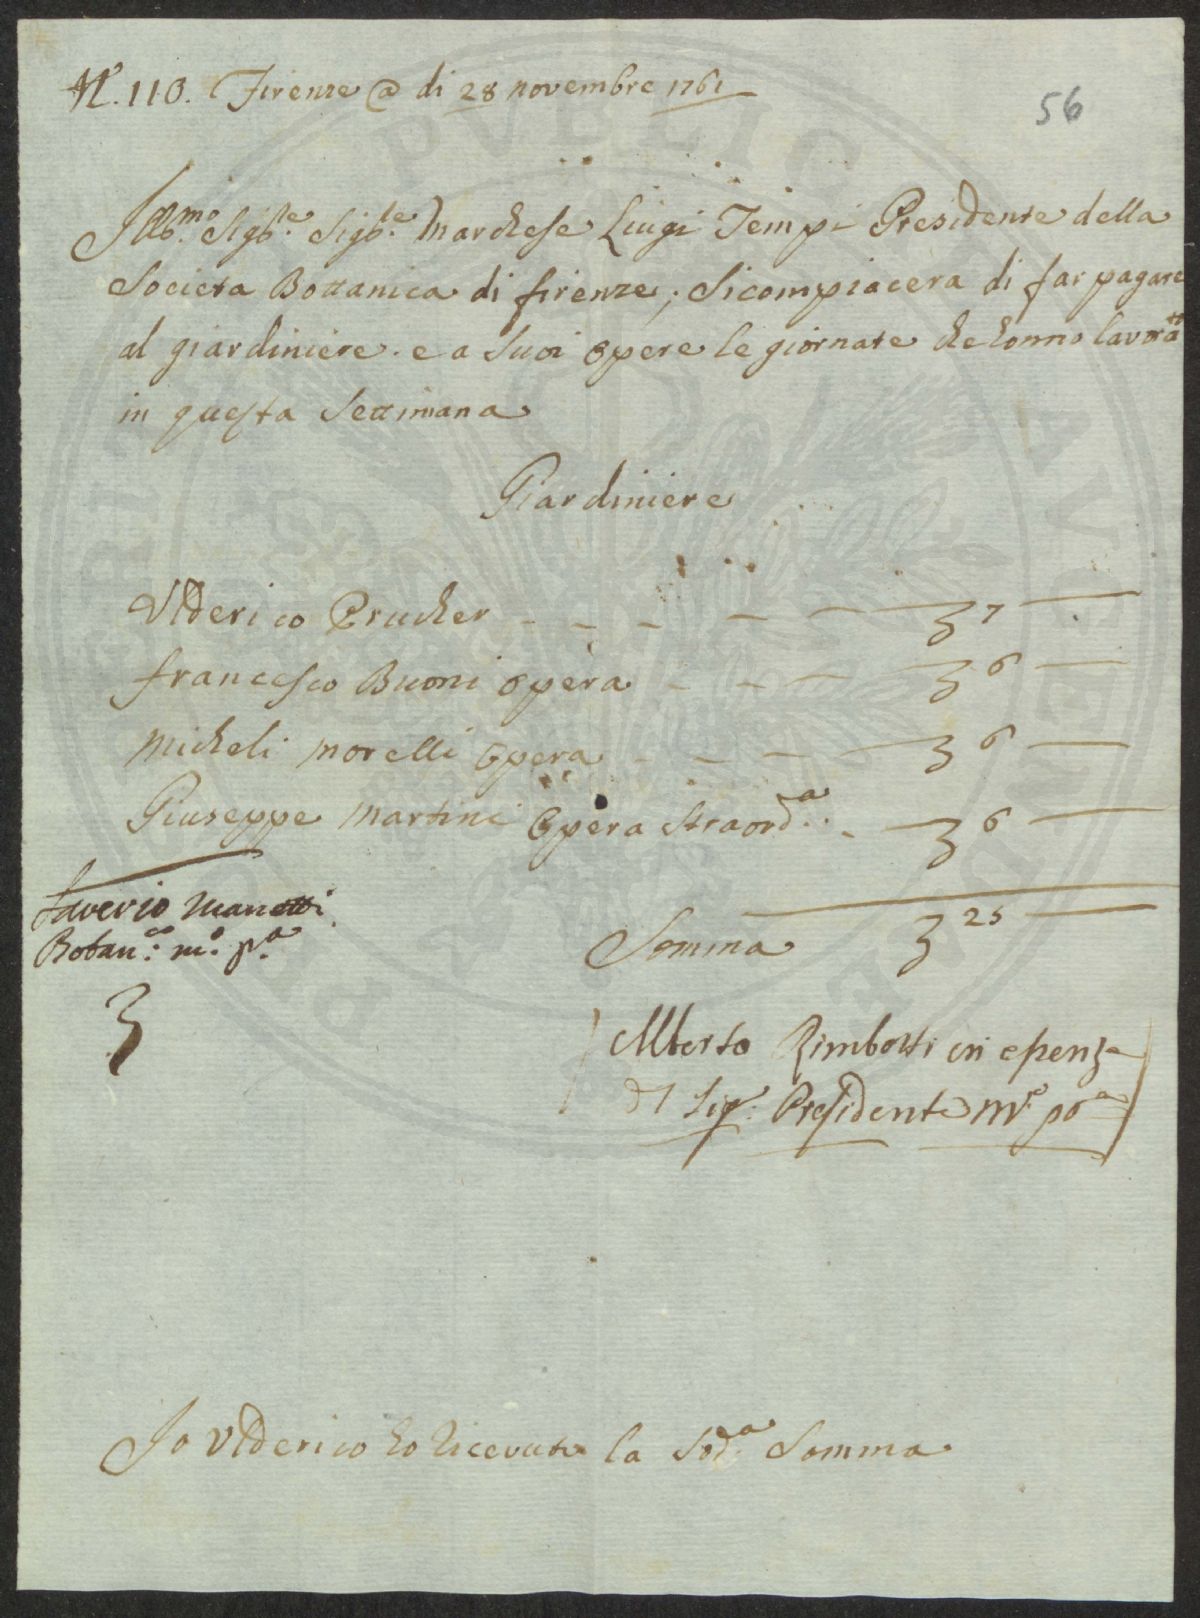 N.° 110. Firenze @ di 28 novembre 1761
56
Illb.mo Sigb.le Sigb.le Marchese Luigi Tempi Presidente della
Societa Bottanica di firenze, Sicompiacera di far pagare
al giardiniere. e a Suoi Opere le giornate che honno lavoratt
in questa Settimana
Giardiniere
Vlderico Prucher - - - - - 7 -
francesco Buoni opera - - - - 6 -
Micheli morelli Opera - - - - 6 -
Giuseppe Martini Opera Straord.a - 6 -
Saverio Manetti
Botan.co m.o p.a
Somma 25 -
Alberto Rimbotti in
Sig.e Presidente M.o po.a
Jo Vlderico ho ricevuto la Sod.a Somma